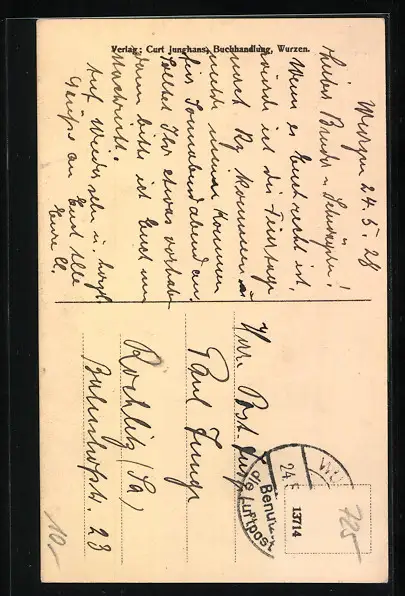 Verlag: Curt Junghans, Buchhandlung, Wurzen.
Wurzen 24.5.28
Lieber Bruder u. Schwägerin!
Wenn es Euch recht ist,
würde ich die Feiertage
nach Ry kommen.
kommen
für Sonnabend abend an.
Solltet Ihr etwas vorhaben
dann bitte ich Euch um
Nachricht.
Auf Wiedersehn u. herzl.
Grüße an Euch Alle
Herr Post
Paul Junge
Rochlitz (Sa)
Bahnhofstr. 23
24.5
Luftpost
13714
10.-